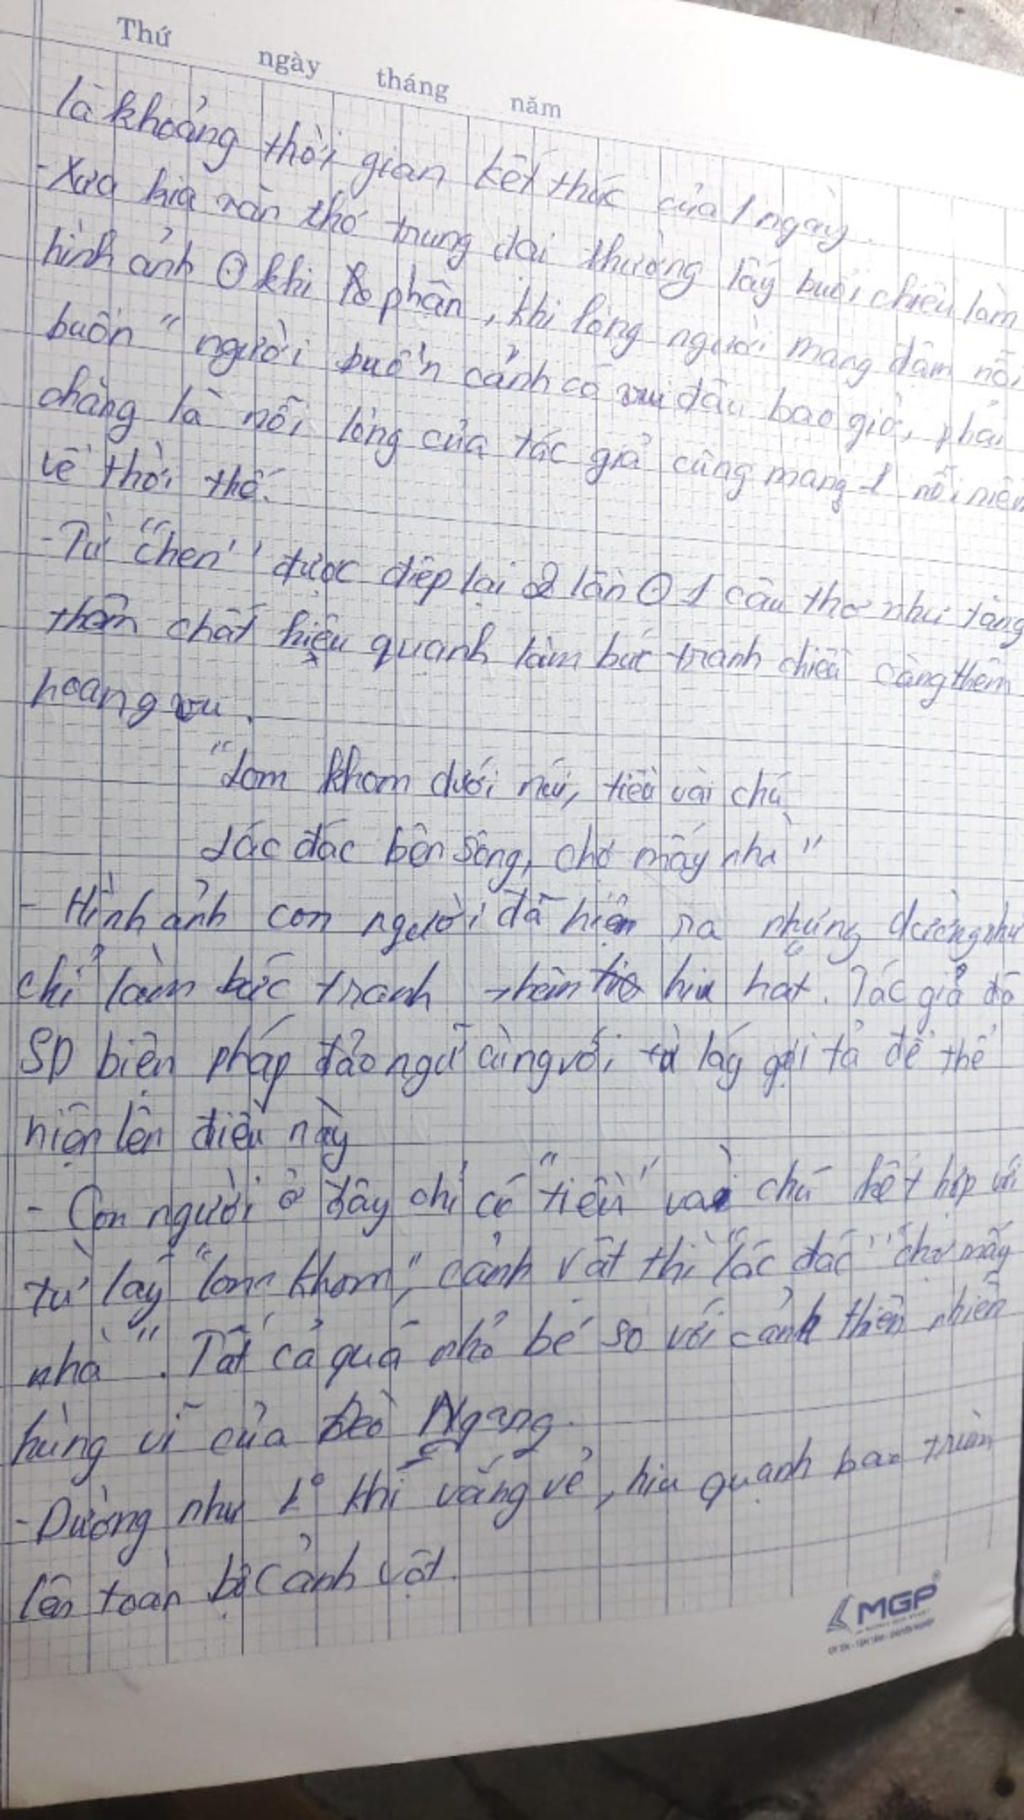 Thứ ngày tháng năm
là khoảng thời gian kết thúc của 1 ngày.
- Xưa kia văn thơ trung đại thường lấy buổi chiều làm
hình ảnh khi phận, khi lòng người mang đậm nỗi
buồn " người buồn cảnh có vui đâu bao giờ, phải
chăng là nỗi lòng của tác giả cũng mang 1 nỗi niềm
về thời thế.
- Từ "chen" được điệp lại 2 lần 1 câu thơ như tăng
thêm chất hiệu quạnh làm bức tranh chiều càng thêm
hoang vu.
"Lom khom dưới núi, tiều vài chú
Lác đác bên sông, chợ mấy nhà"
- Hình ảnh con người đã hiện ra nhưng dường như
chỉ làm bức tranh thêm hiu hạt. Tác giả đã
SD biện pháp đảo ngữ cùng với từ láy gợi tả để thể
hiện lên điều này
- Con người ở đây chỉ có "tiều" vài chú kết hợp với
từ láy "lom khom", cảnh vật thì "lác đác" "chợ mấy
nhà". Tất cả quá nhỏ bé so với cảnh thiên nhiên
hùng vĩ của Đèo Ngang.
- Dường như 1 khí vắng vẻ, hiu quạnh bao trùm
lên toàn bộ cảnh vật.
MGP